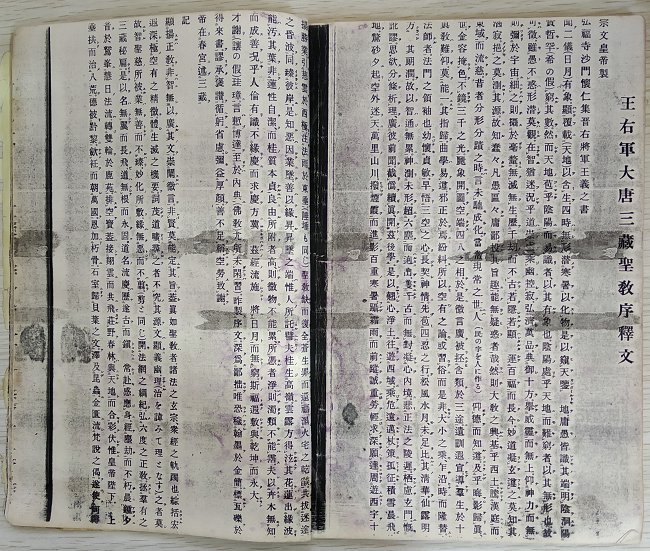 王右軍大唐三藏聖教序釋文
宗文皇帝製
弘福寺沙門懷仁集晉右將軍王羲之書
聞二儀(日月)有象顯覆載(天地)以含生四時無形潛寒暑以化物是以窺天鑒地庸愚皆識其端明陰洞陽
賢哲罕(希の假)窮其數然而天地苞乎陰陽而易識者以其有象也陰陽處乎天地而難窮者以其無形也故
可徵雖愚不惑形潛莫覩在智猶迷況乎道崇虛乘幽控寂弘濟萬品典御十方擧威靈而無上抑神力而無
則彌於宇宙細之則攝於毫釐無滅無生歷千劫而不古若隱若顯運百福而長今妙道凝玄遵之莫知其
湛寂挹之莫測其源故知蠢々凡愚區々庸鄙投其旨趣能無疑惑者哉然則大教之興基乎西土騰漢庭而
東域而流慈昔者分形分蹟之時言未馳成化當常現常之世人(民の字を人に作る)仰德而知遵及乎晦影歸眞
世金容掩色不鏡三千之光麗象開圖空端四八之相於是微言廣被拯含類於三途遺訓遐宣導羣生於十
教難仰莫能一其指歸曲學易遵邪正於焉紛糾所以空有之論或習俗而是非大小之乘乍沿時而隆替
法師者法門之領袖也幼懷貞敏早悟三空之心長契神情先苞四忍之行松風水月未足比其清華仙露明
方其朗潤故以智通無累神測未形超六塵而迥出隻千古而無對凝心內境悲正法之陵遲栖慮玄門慨
訛謬思欲分條析理廣彼前聞截僞續眞開茲後學是以翹心淨土往遊西域乘危遠邁杖策孤征積雪晨飛
地驚砂夕起空外迷天萬里山川撥煙霞而進影百重寒暑躡霜雨而前蹤誠重勞輕求深願達周遊西宇十
勝業引慈雲於西極注法雨於東垂聖教缺而復全蒼生罪而還福濕火宅之乾燄共拔迷途
之昏波同臻彼岸是知惡因業墜善以緣昇昇墜之端惟人所託譬夫桂生高嶺雲露方得泫其花蓮出綠波
能汚其葉非蓮性自潔而桂質本貞良由所附者高則微物不能累所憑者淨則濁類不能霑夫以卉木無知
而成善況乎人倫有識不緣慶而求慶方冀茲經流施將日月而無窮斯福遐敷與乾坤而永大
才謝珪璋言慙博達至於內典(佛教)尤所未閑昨製序文深爲鄙拙唯恐穢翰墨於金簡標瓦礫於
得來書謬承褒讚循躬省慮彌益厚顏善不足稱空勞致謝
帝在春宮述三藏
記
顯揚正教非智無以廣其文崇闡微言非賢莫能定其旨蓋眞如聖教者諸法之玄宗衆經之軌躅也綜括宏
遐深極空有之精微體生滅之機要詞茂道曠尋之者不究其源文顯義幽理之者莫
故知聖慈所被業無善而不臻妙化所敷緣無惡而不翦開法網之綱紀弘六度之正教拯羣有之
三藏秘扃是以名無翼而長飛道無根而永固道名流慶歷遂古而鎭常赴感應身經塵劫而不朽
音於鷲峯慧日法流轉雙輪於鹿苑排空寶蓋接翔雲而共飛莊野春林與天花而合彩伏惟皇帝陛下上
垂拱而治八荒德被黔黎斂衽而朝萬國恩加朽骨石室歸貝葉之文澤及昆蟲金匱流梵說之偈